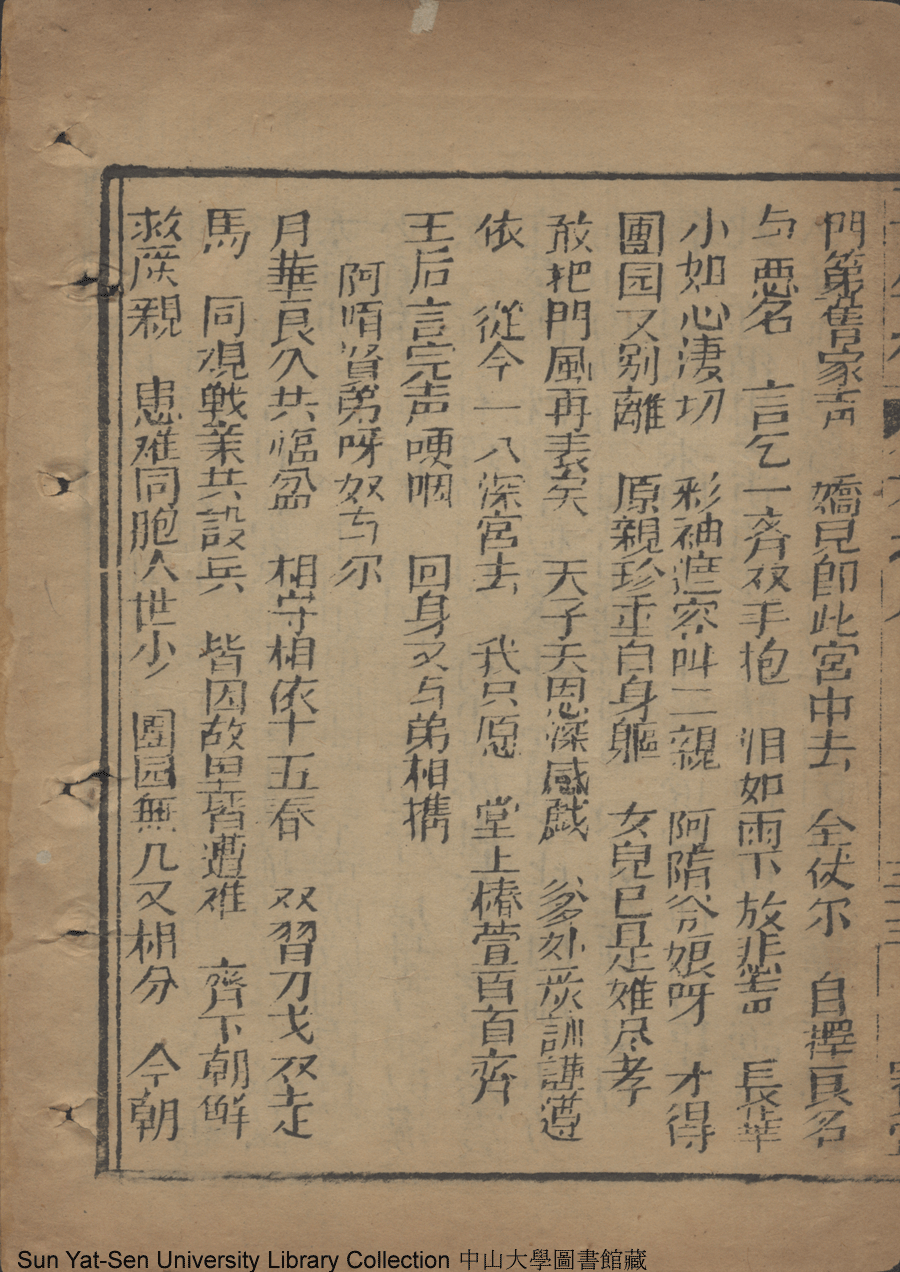 門第舊家声　嬌兒即此宮中去　全仗尔　自擇良名
与惡名　言乞一齊双手抱　泪如雨下放悲声　長華
小如心淒切　彩袖遮容叫二親　阿隋爷娘呀　才得
團园又别離　原親珍重自身軀　女兒已是难尽孝
敢把門風再表矣　天子天恩深感戯　爹处严訓謹遵
依　從今一入深宮去　我只愿　堂上椿萱百百齊
王后言完声哽咽　回身又与弟相携
阿唷賢弟呀奴与尔
月華良久共临盆　相守相依十五春　双習刀戈双走
馬　同視戦業共設兵　皆因故里皆遭难　齊下朝鮮
救庻親　患难同胞人世少　團园無几又相分　今朝
Sun Yat-Sen University Library Collection 中山大學圖書館藏